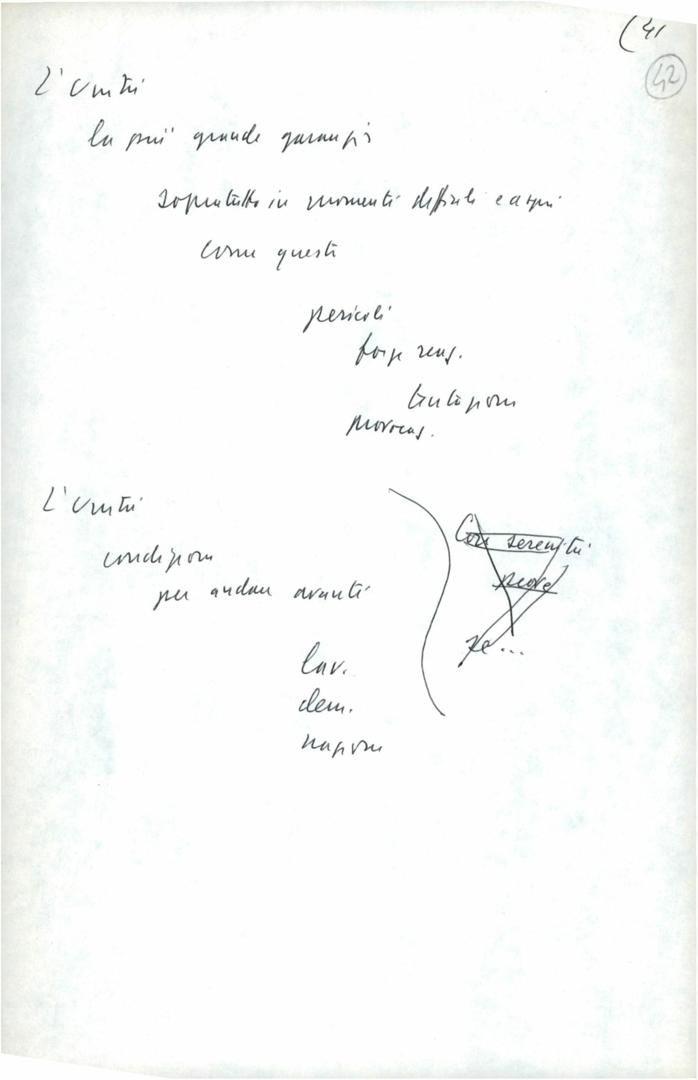 (41
42
L'unità
la più grande garanzia
sopratutto in momenti difficili e aspri
come questi
pericoli
forze reaz.
tentazioni
provocaz.
L'unità
condizione
per andare avanti
Con serenità
prove
se...
lav.
dem.
nazione